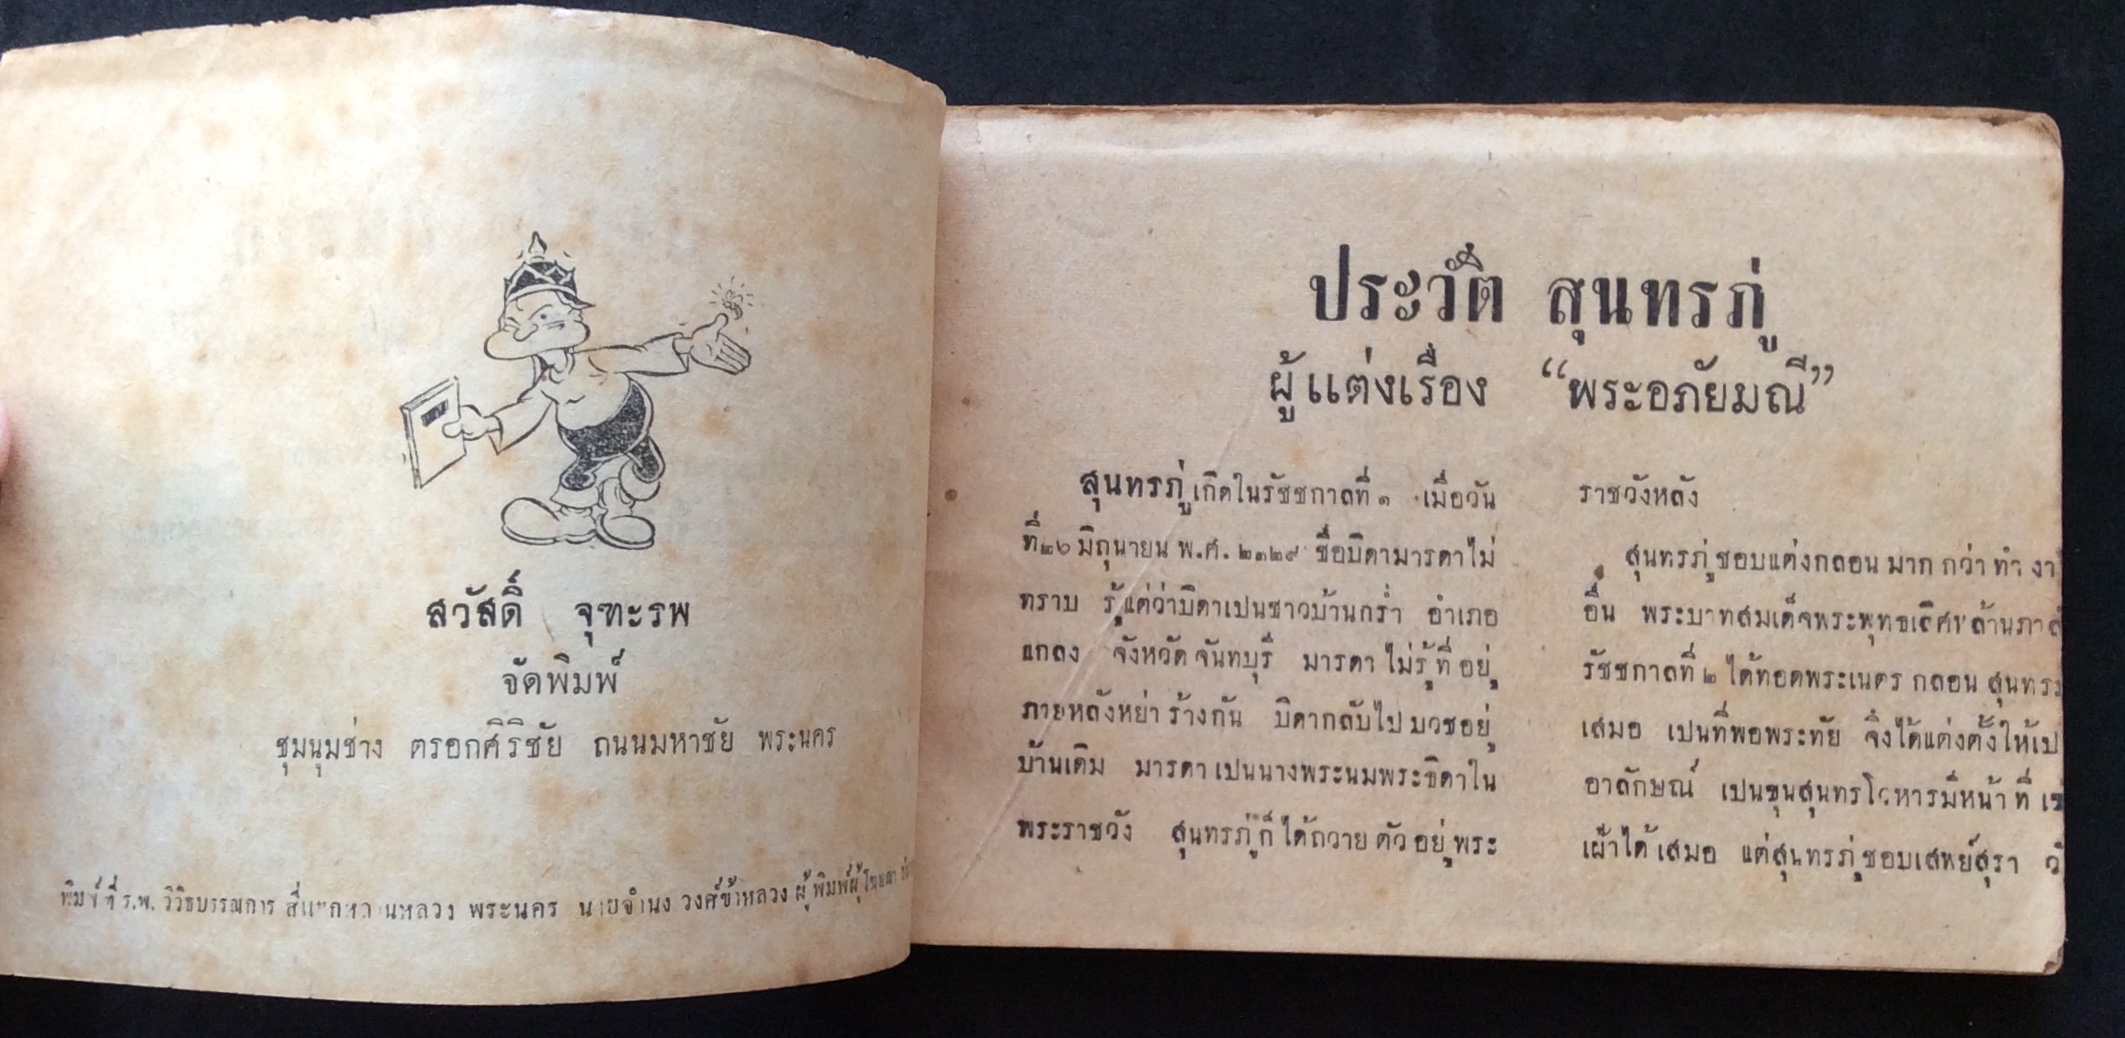 สวัสดิ์ จุฑะรพ
จัดพิมพ์
ชุมนุมช่าง ตรอกศิริชัย ถนนมหาชัย พระนคร
พิมพ์ที่ ร.พ. วิวิธบรรณการ หลวง พระนคร นายจำนง วงศ์ข้าหลวง ผู้พิมพ์ผู้โฆษณา
ประวัติ สุนทรภู่
ผู้แต่งเรื่อง “พระอภัยมณี”
สุนทรภู่ เกิดในรัชชกาลที่ ๑ เมื่อวัน
ที่ ๒๖ มิถุนายน พ.ศ. ๒๓๒๙ ชื่อบิดามารดาไม่
ทราบ รู้แต่ว่าบิดาเปนชาวบ้านกร่ำ อำเภอ
แกลง จังหวัดจันทบุรี มารดาไม่รู้ที่อยู่
ภายหลังหย่าร้างกัน บิดากลับไปบวชอยู่
บ้านเดิม มารดาเปนนางพระนมพระธิดาใน
พระราชวัง สุนทรภู่ก็ได้ถวายตัวอยู่พระ
ราชวังหลัง
สุนทรภู่ชอบแต่งกลอนมากกว่าทำงา
อื่น พระบาทสมเด็จพระพุทธเลิศหล้านภาลั
รัชชกาลที่ ๒ ได้ทอดพระเนตรกลอนสุนทรภ
เสมอ เปนที่พอพระทัย จึงได้แต่งตั้งให้เป
อาลักษณ์ เปนขุนสุนทรโวหารมีหน้าที่เข
เฝ้าได้เสมอ แต่สุนทรภู่ชอบเสพย์สุรา วั